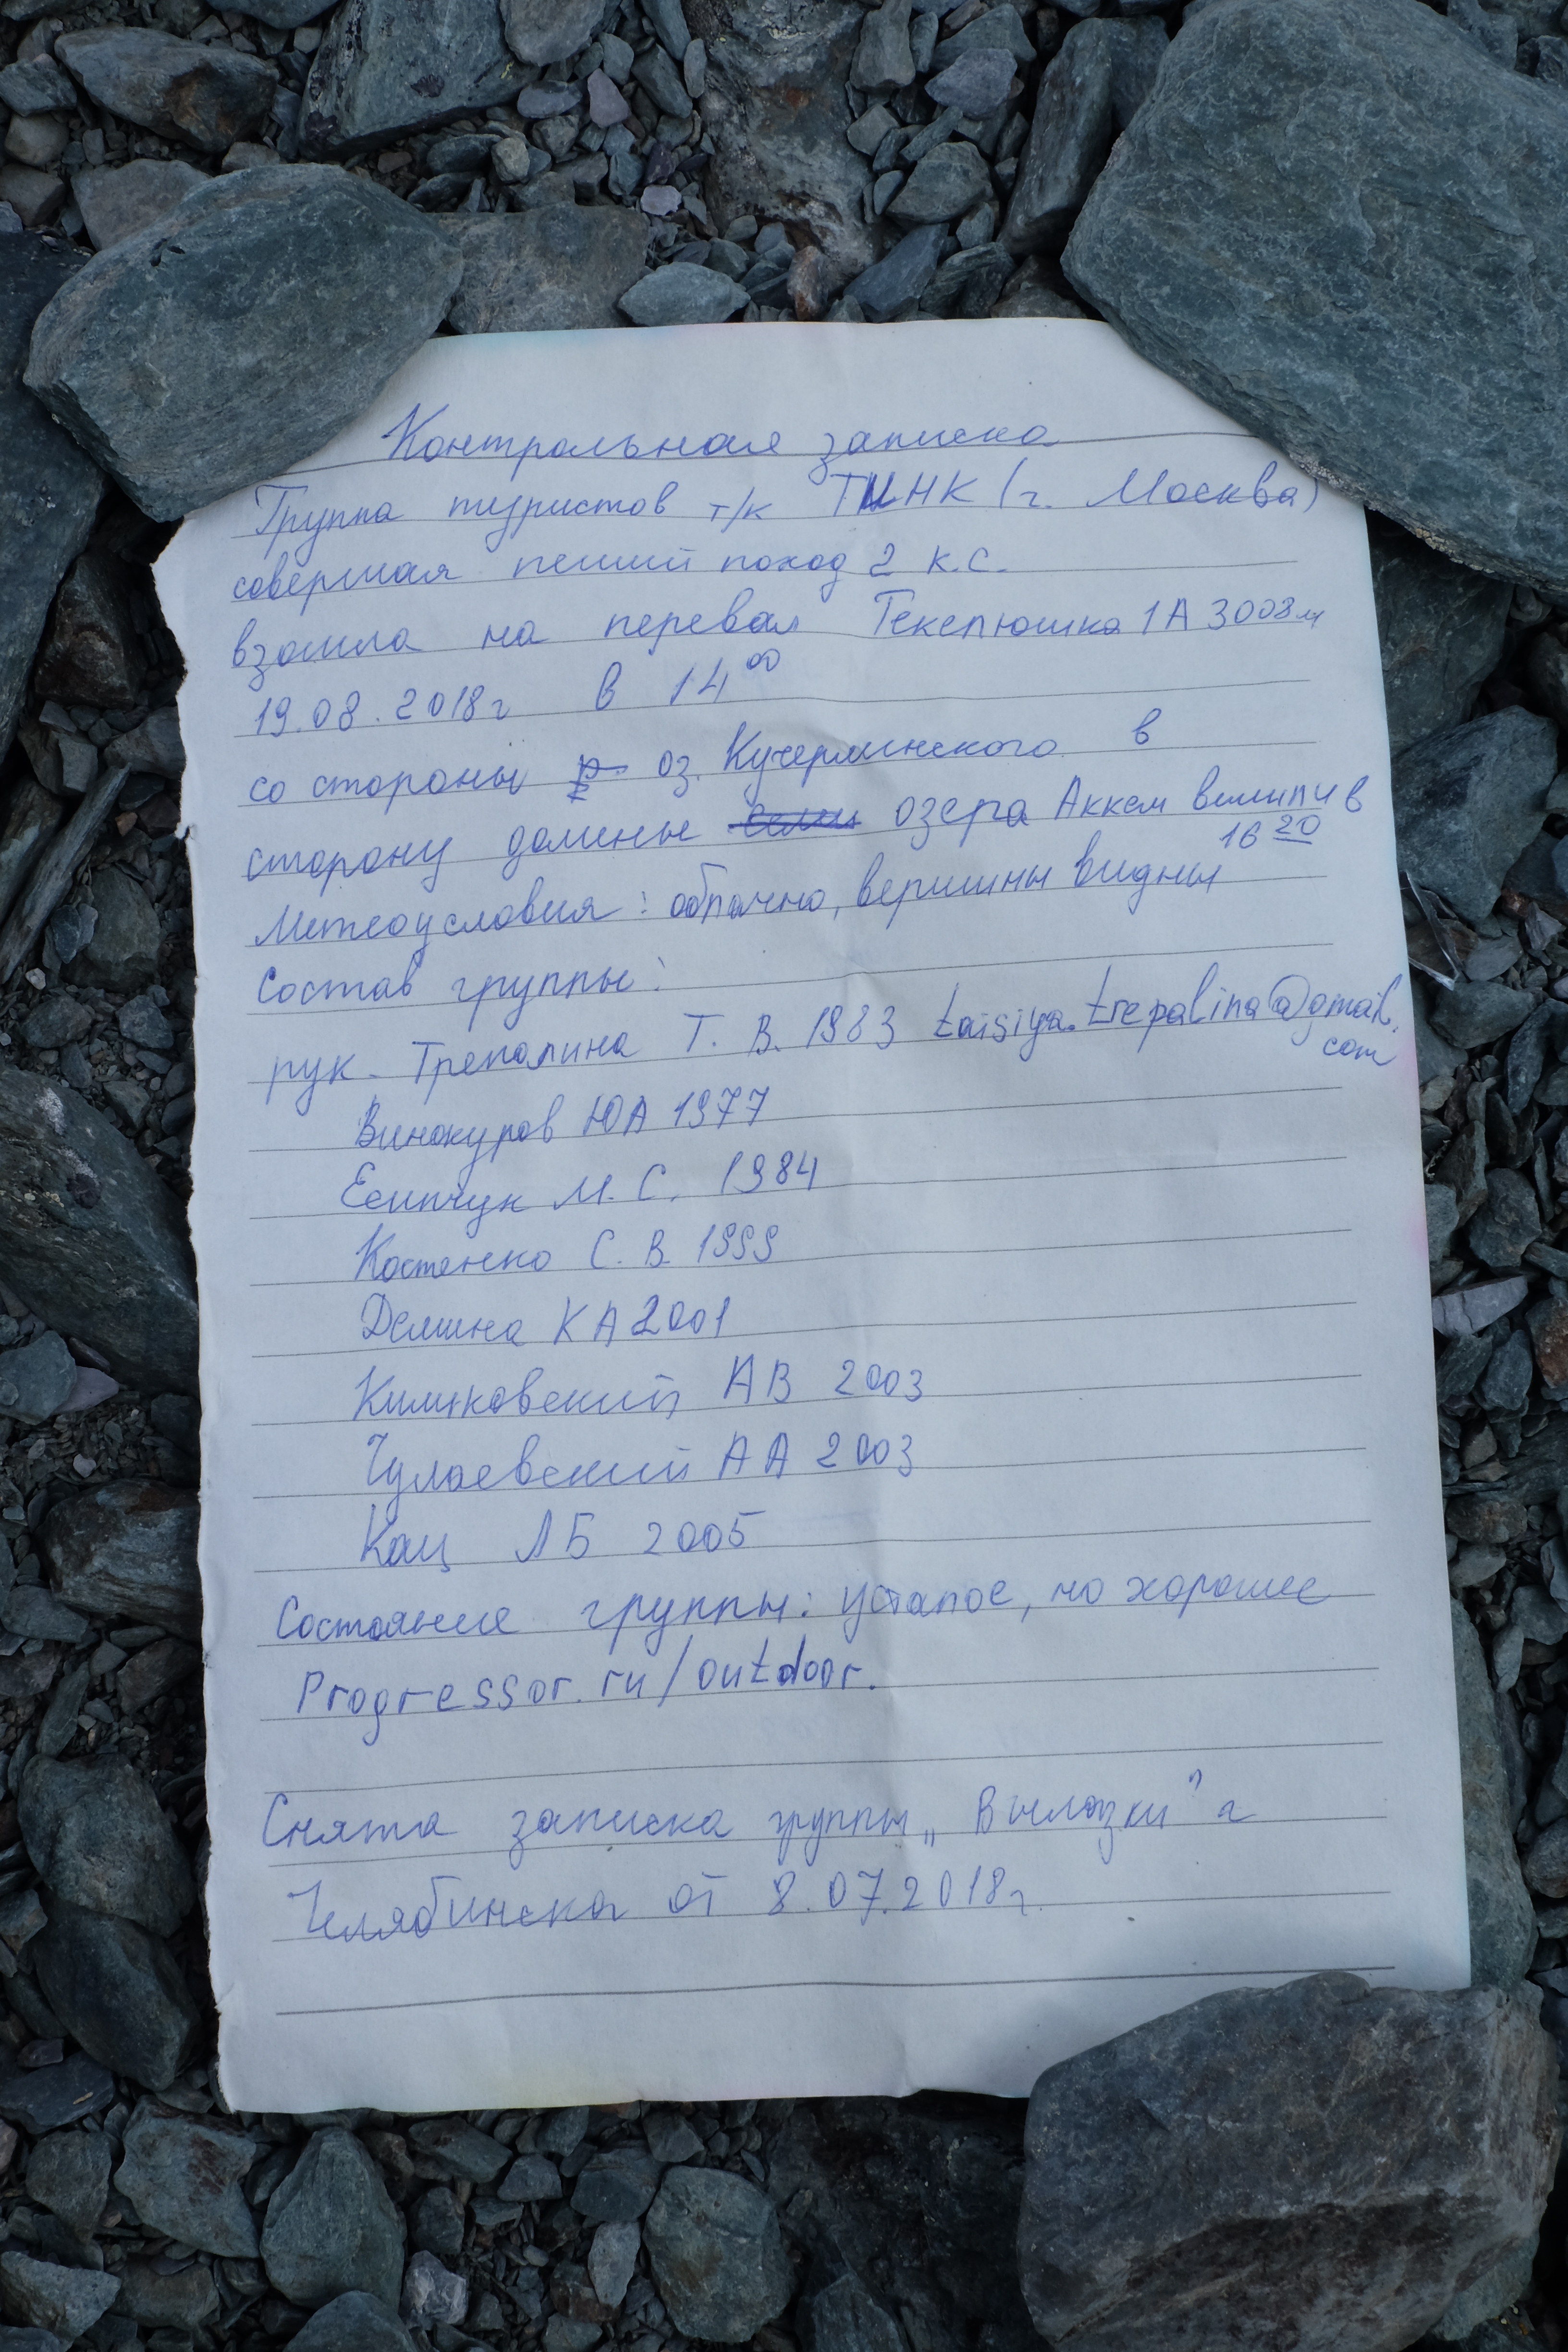 Контрольная записка
Группа туристов т/к ТИНК (г. Москва)
совершая пеший поход 2 к.с.
взошла на перевал Текелюшка 1А 3008м
19.08.2018г в 14 00
со стороны оз. Кучерлинского в
сторону долины озера Аккем вышли в
16 20
Метеоусловия: облачно, вершины видны
Состав группы:
рук. Трепалина Т. В. 1983 taisiya.trepalina@gmail.
com
Винокуров ЮА 1977
Есипчук М. С. 1984
Костенко С. В. 1999
Демина КА 2001
АВ 2003
Чулаевский АА 2003
Кац ЛБ 2005
Состояние группы: усталое, но хорошее
Progressor.ru/outdoor.
Снята записка группы „Вылазки" г
Челябинска от 8.07.2018г.